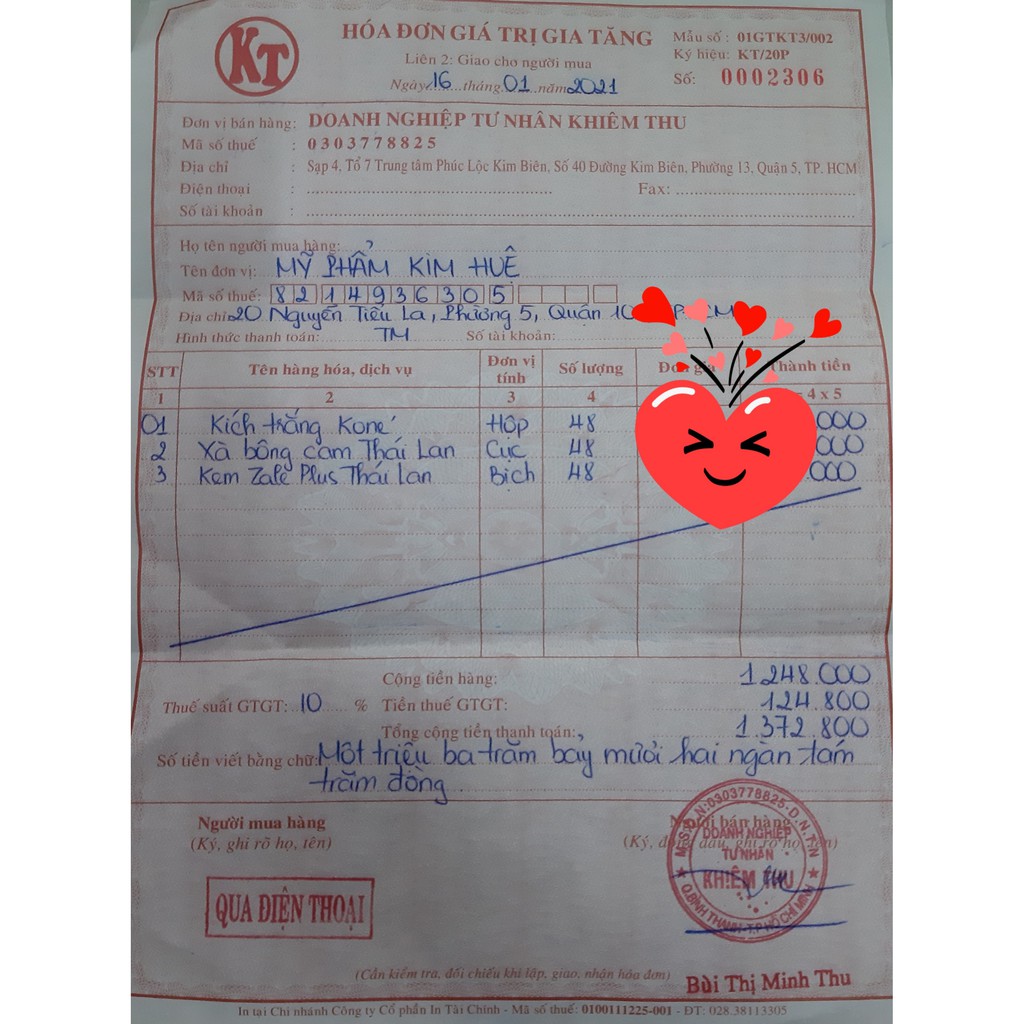 KT
HÓA ĐƠN GIÁ TRỊ GIA TĂNG
Liên 2: Giao cho người mua
Ngày 16 tháng 01 năm 2021
Mẫu số : 01GTKT3/002
Ký hiệu: KT/20P
Số: 0002306
Đơn vị bán hàng: DOANH NGHIỆP TƯ NHÂN KHIÊM THU
Mã số thuế : 0303778825
Địa chỉ : Sạp 4, Tổ 7 Trung tâm Phúc Lộc Kim Biên, Số 40 Đường Kim Biên, Phường 13, Quận 5, TP. HCM
Điện thoại : Fax:
Số tài khoản :
Họ tên người mua hàng:
Tên đơn vị: MỸ PHẨM KIM HUÊ
Mã số thuế: 8214936305
Địa chỉ: 20 Nguyễn Tiểu La, Phường 5, Quận 10
Hình thức thanh toán: TM Số tài khoản:
STT Tên hàng hóa, dịch vụ Đơn vị tính Số lượng Đơn giá Thành tiền
1 2 3 4 4 x 5
01 Kích trắng Koné Hộp 48 000
2 Xà bông cam Thái Lan Cục 48 000
3 Kem Zale Plus Thái Lan Bịch 48 .000
Cộng tiền hàng: 1.248.000
Thuế suất GTGT: 10 % Tiền thuế GTGT: 124.800
Tổng cộng tiền thanh toán: 1.372.800
Số tiền viết bằng chữ: Một triệu ba trăm bảy mươi hai ngàn tám
trăm đồng
Người mua hàng Người bán hàng
(Ký, ghi rõ họ, tên) (Ký, đóng dấu, ghi rõ họ, tên)
QUA ĐIỆN THOẠI
M.S.D.N:0303778825-D.N.T.N
DOANH NGHIỆP
TƯ NHÂN
KHIÊM THU
Q.BÌNH THẠNH-T.P HỒ CHÍ MINH
Bùi Thị Minh Thu
(Cần kiểm tra, đối chiếu khi lập, giao, nhận hóa đơn)
In tại Chi nhánh Công ty Cổ phần In Tài Chính - Mã số thuế: 0100111225-001 - ĐT: 028.38113305